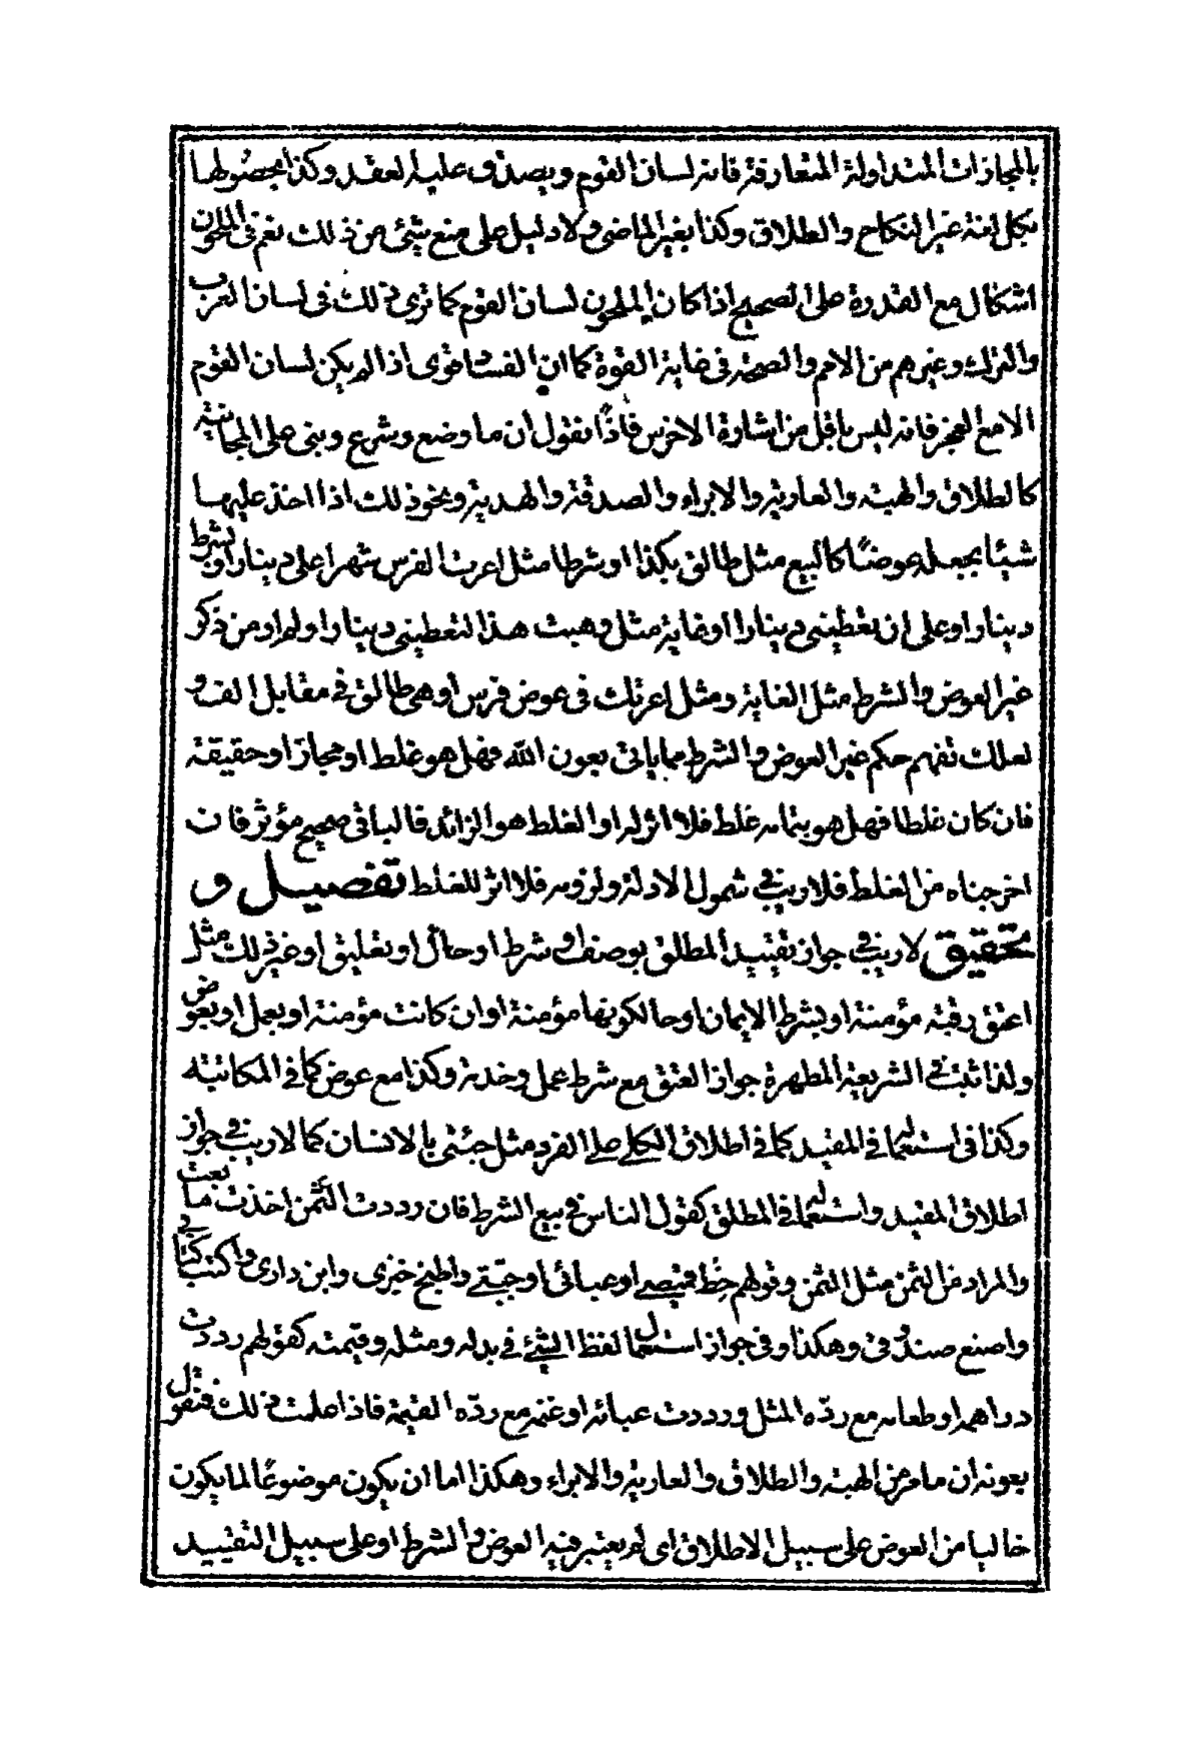 بالمجازات المتداولة المتعارفة فانه لسان القوم ويصدق عليه العقد وكذا بحصولها
بكل لغة غير النكاح والطلاق وكذا بغير الماضى ولا دليل على منع شئ من ذلك نعم فى الملحون
اشكال مع القدرة على الصحيح اذا كان الملحون لسان القوم كما ترى ذلك فى لسان العرب
والترك وغيرهم من الامم والصحة فى غاية القوة كما ان الفساد قوى اذا لم يكن لسان القوم
الا مع العجز فانه ليس باقل من اشارة الاخرس فاذًا نقول ان ما وضع وشرع وبنى على المجانية
كالطلاق والهبة والعارية والابراء والصدقة والهدية ونحو ذلك اذا اخذ عليها
شيئا بجعله عوضًا كالبيع مثل طالق بكذا او شرطا مثل اعرت الفرس شهرا على دينار او بشرط
دينار او على ان تعطينى دينارا او غاية مثل وهبت هذا لتعطينى دينارا ولم ار من ذكر
غير العوض والشرط مثل الغاية ومثل اعرتك فى عوض فرس او هى طالق فى مقابل الف و
لعلك تفهم حكم غير العوض والشرط مما ياتى بعون الله فهل هو غلط او مجاز او حقيقة
فان كان غلطا فهل هو بتمامه غلط فلا اثر له او الغلط هو الزائد فالباقى صحيح مؤثر فان
اخرجناه من الغلط فلا ريب فى شمول الادلة ولزومه فلا اثر للغلط تفصيل و
تحقيق لا ريب فى جواز تقييد المطلق بوصف او شرط او حال او تعليق او غير ذلك مثل
اعتق رقبة مؤمنة او بشرط الايمان او حالكونها مؤمنة او ان كانت مؤمنة او بعمل او بعوض
ولذا ثبت فى الشريعة المطهرة جواز العتق مع شرط عمل وخدمة وكذا مع عوض كما فى المكاتبة
وكذا فى استعمالها فى المقيد كما فى اطلاق الكلى على الفرد مثل جئنى بالانسان كما لا ريب فى جواز
اطلاق المقيد واستعماله فى المطلق كقول الناس فى بيع الشرط فان رددت الثمن اخذت ما بعت
والمراد من الثمن مثل الثمن وقولهم خِط قميصى او عبائى او جبّتى واطبخ خبزى وابن دارى واكتب كتابى
واصنع صندوقى وهكذا وفى جواز استعمال لفظ الشئ فى بدله ومثله وقيمته كقولهم رددت
دراهمه او طعامه مع ردّه المثل ورددت عبائه او غنمه مع ردّه القيمة فاذا علمت ذلك فنقول
بعونه ان ما مر من الهبة والطلاق والعارية والابراء وهكذا اما ان يكون موضوعًا لما يكون
خاليا من العوض على سبيل الاطلاق اى لم يعتبر فيه العوض والشرط او على سبيل التقييد